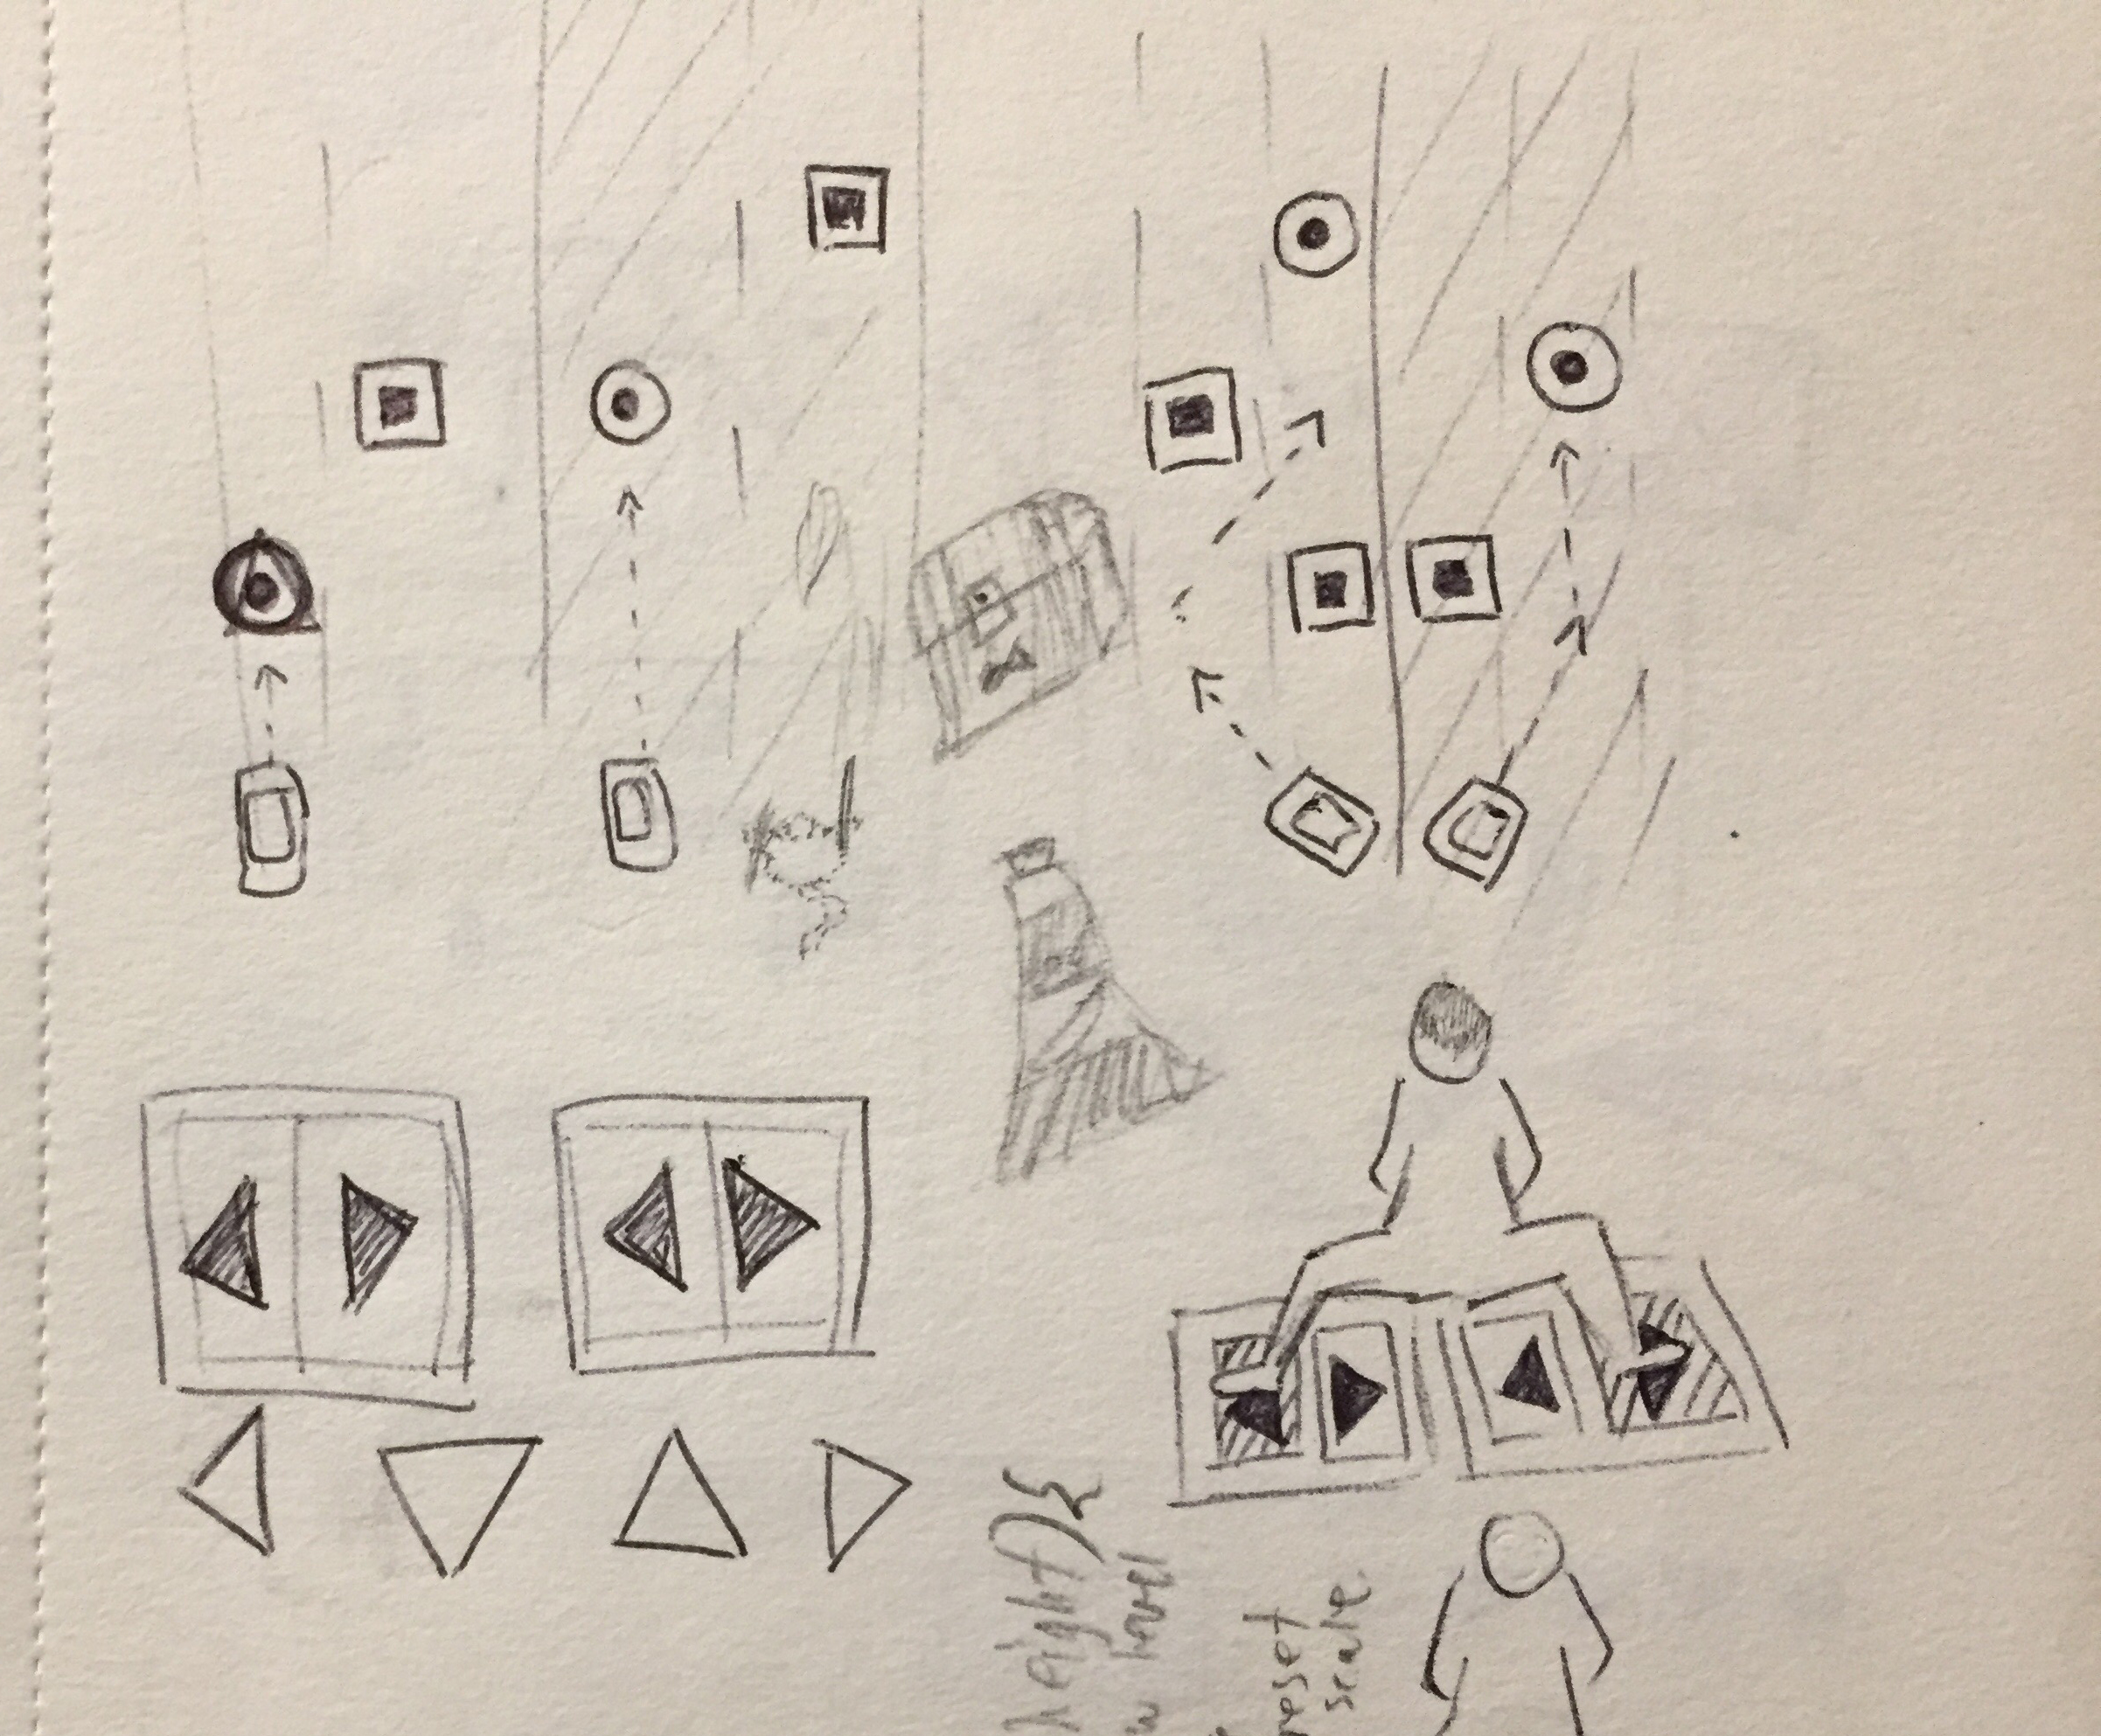 height){
level
reset
scale.